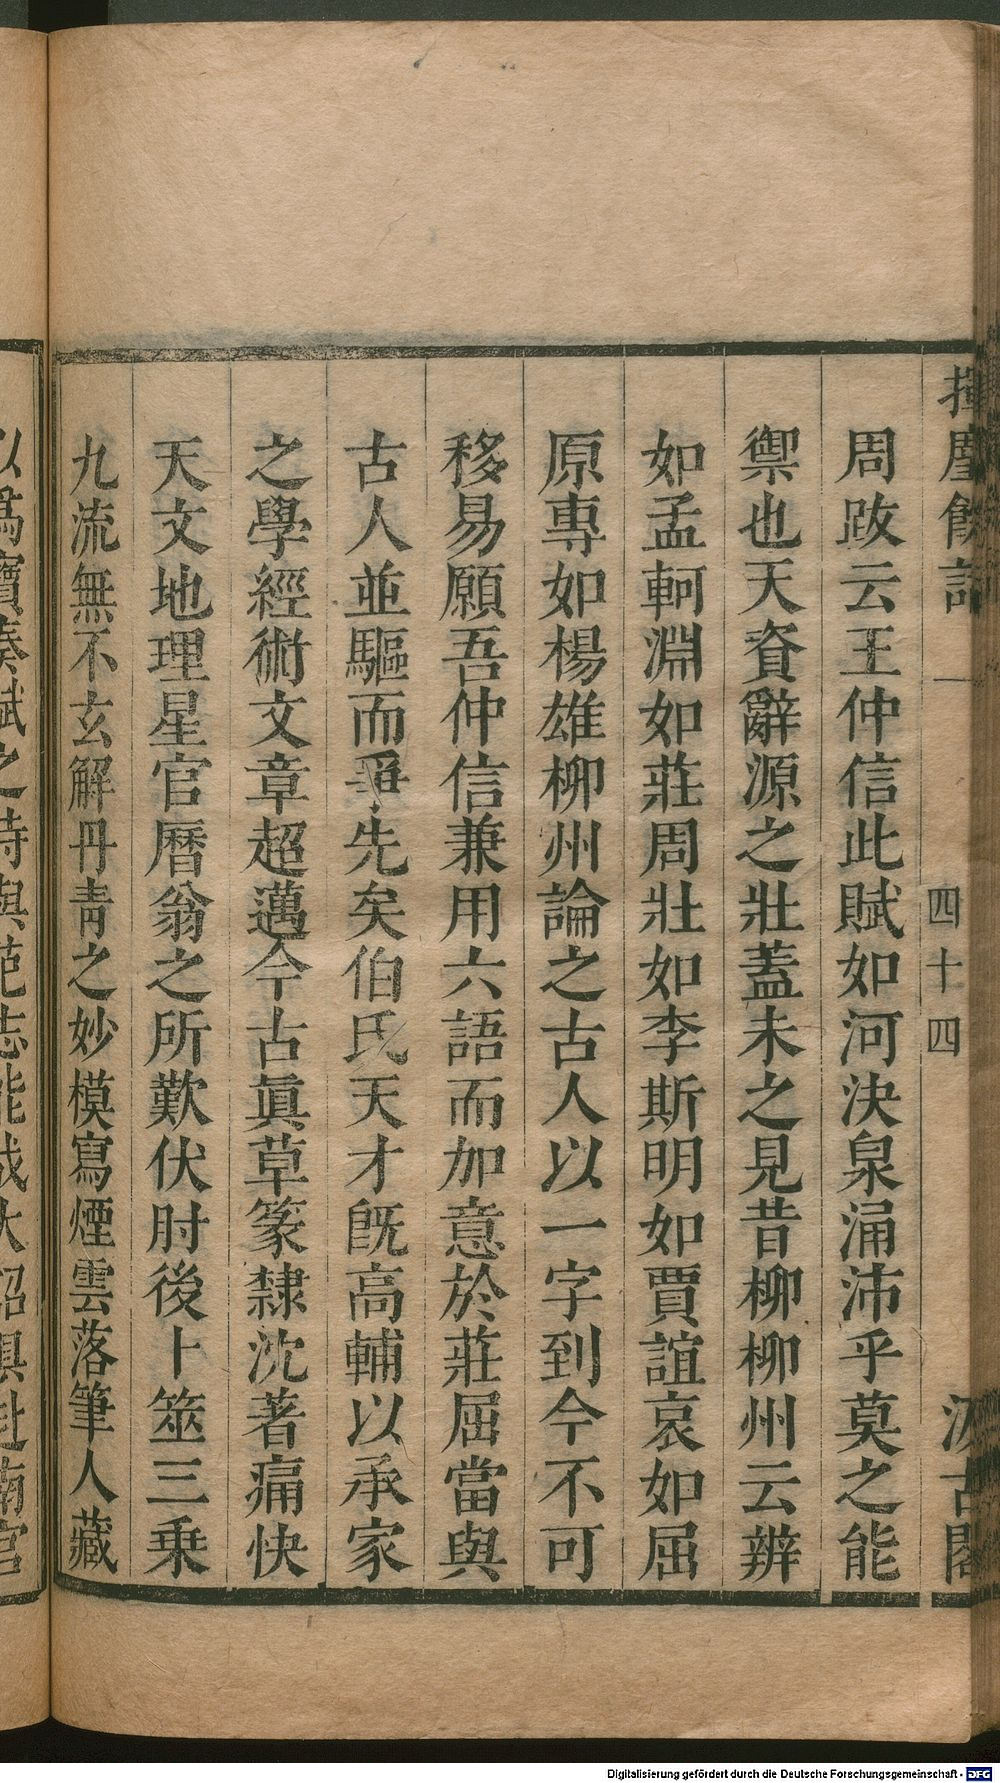 揮麈餘話 一 四十四 汲古閣
周跋云王仲信此賦如河決泉涌沛乎莫之能
禦也天資辭源之壯蓋未之見昔柳柳州云辨
如孟軻淵如莊周壯如李斯明如賈誼哀如屈
原專如楊雄柳州論之古人以一字到今不可
移易願吾仲信兼用六語而加意於莊屈當與
古人並驅而爭先矣伯氏天才旣高輔以承家
之學經術文章超邁今古眞草篆隸沈著痛快
天文地理星官曆翁之所歎伏肘後卜筮三乗
九流無不玄解丹靑之妙模寫煙雲落筆人藏
以爲寶奏賦之時與范志能成大詔俱赴南宮
Digitalisierung gefördert durch die Deutsche Forschungsgemeinschaft - DFG